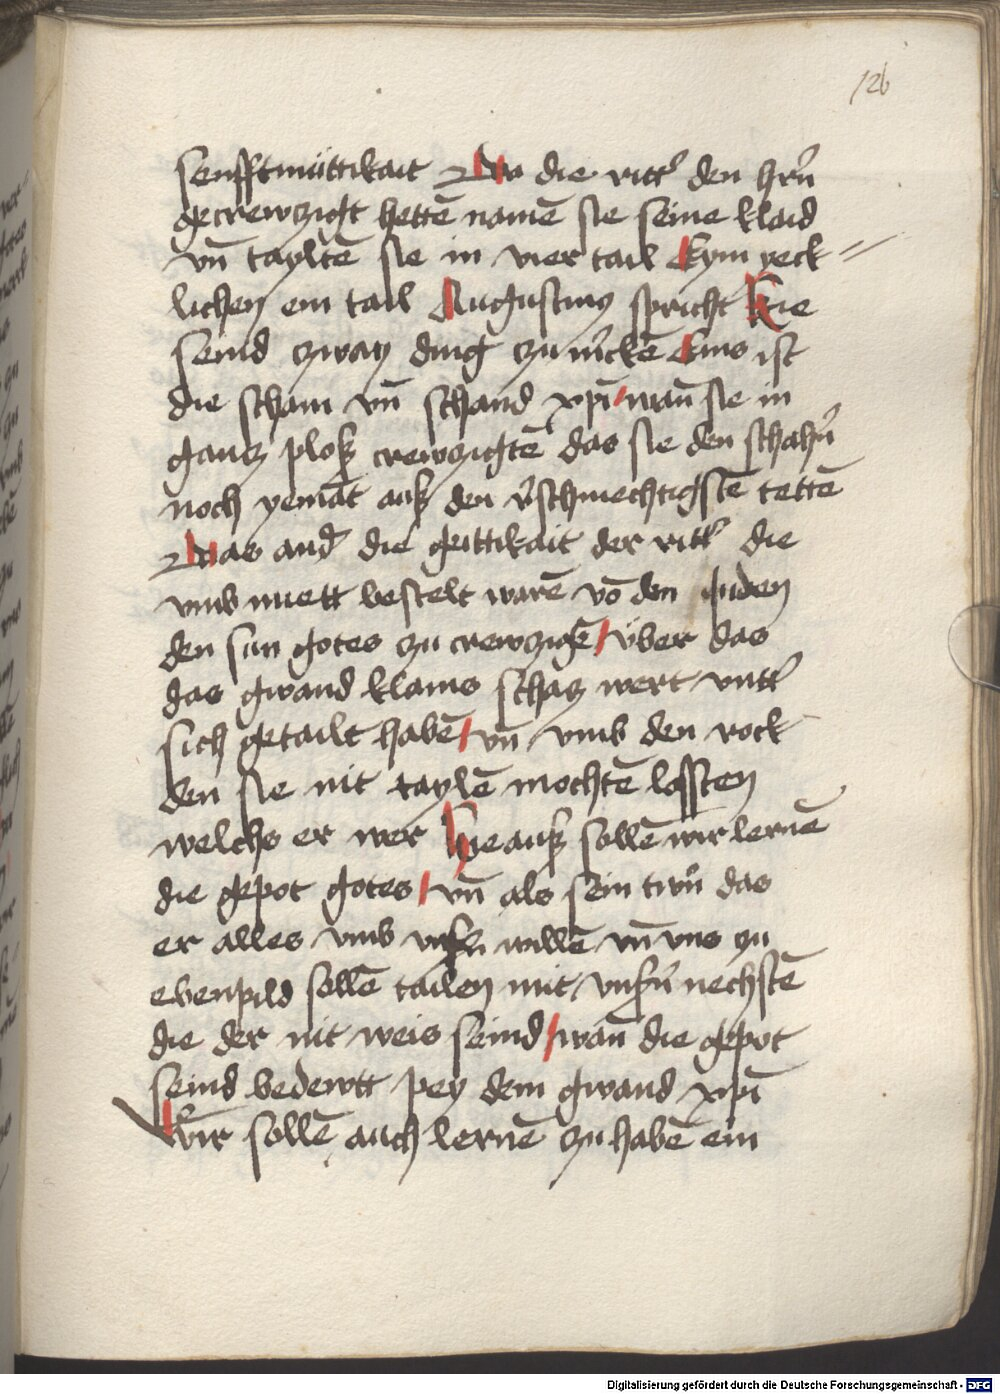 126
senfftmüttikait Da die ritt' den hrn̄
gecrewczigt hettē namē sie seine klaid
vn̄ tayltē sie in vier tail Eym yeck=
lichen ein tail Augustinꝰ spricht Hie
seind czway ding czu m'ckē Eins ist
die scham vn̄ schand xpī / wan̄ sie in
gancz plosz crewczigtē das sie den schahrn̄
noch yemāt ausz den v'schmechtigstē tettē
Das and' die geittikait der ritt' die
vmb miett bestelt warē vō den iuden
den sun gotes czu crewczigē / über das
das gwand klains schacz wert vntt'
sich getailt habē / vn̄ vmb den rock
den sie nit taylē mochtē lossten
welchs er wer Hieausz sollē wir lernē
die gepot gotes / vn̄ als sein
das
er alles vmb vnsn̄ willē vn̄ vns zu
ebenpild sollē tailen mit vnsn̄ nechstē
die der nit weis seind / wan̄ die gepot
seind bedewtt pey dem gwand xpī
Wir sollē auch lernē zu habē ein
Digitalisierung gefördert durch die Deutsche Forschungsgemeinschaft - DFG